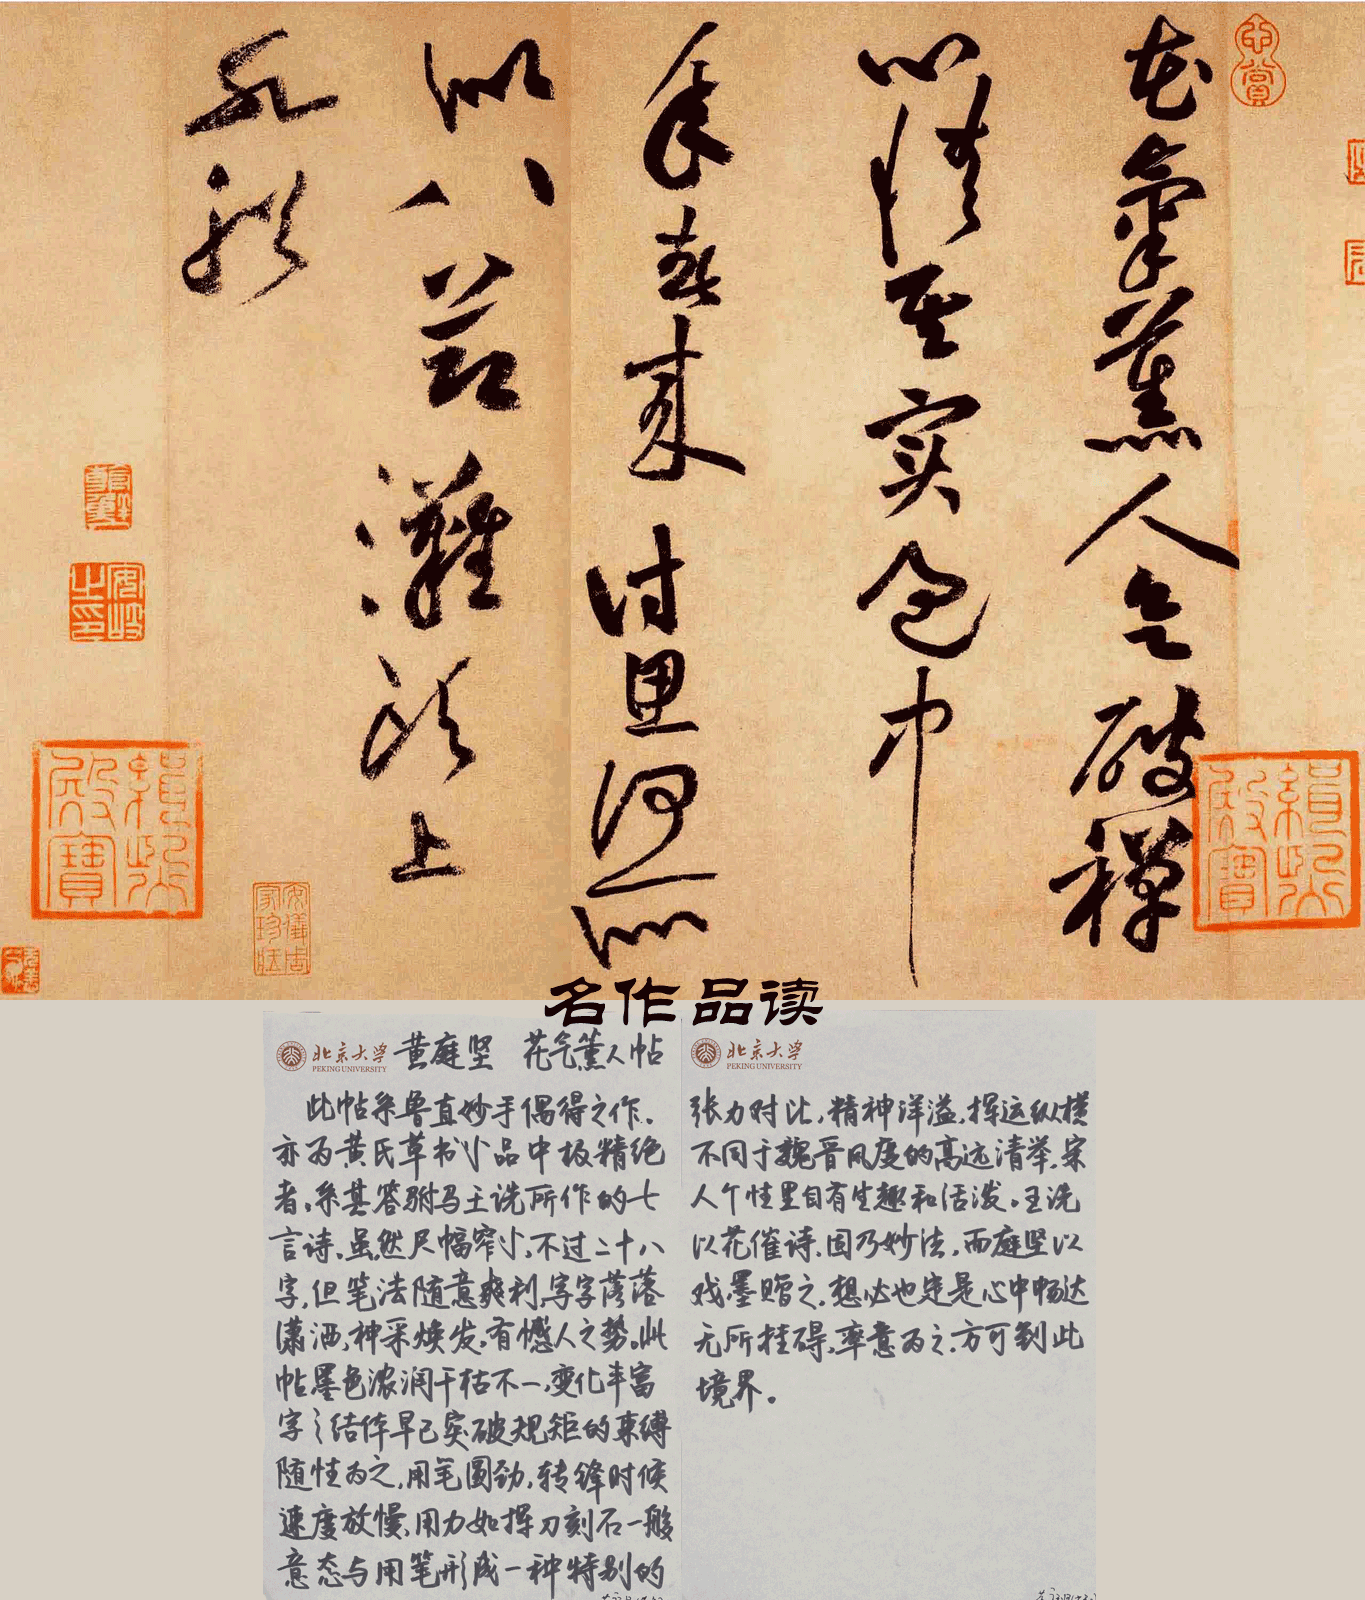 花氣薰人欲破禪
心情其實過中
年春來詩思何所
似八節灘頭上
水船
名作品读
北京大学
PEKING UNIVERSITY
黄庭坚 花气薰人帖
此帖系鲁直妙手偶得之作,
亦为黄氏草书小品中极精绝
者,系其答驸马王诜所作的七
言诗,虽然尺幅窄小,不过二十八
字,但笔法随意爽利,字字落落
潇洒,神采焕发,有憾人之势。此
帖墨色浓润干枯不一,变化丰富
字字结体早已突破规矩的束缚
随性为之,用笔圆劲,转锋时候
速度放慢,用力如挥刀刻石一般
意态与用笔形成一种特别的
北京大学
PEKING UNIVERSITY
张力对比,精神洋溢,挥运纵横
不同于魏晋风度的高远清举,宋
人个性里自有生趣和活泼。王诜
以花催诗,固乃妙法,而庭坚以
戏墨赠之,想必也定是心中畅达
无所挂碍,率意为之,方可到此
境界。